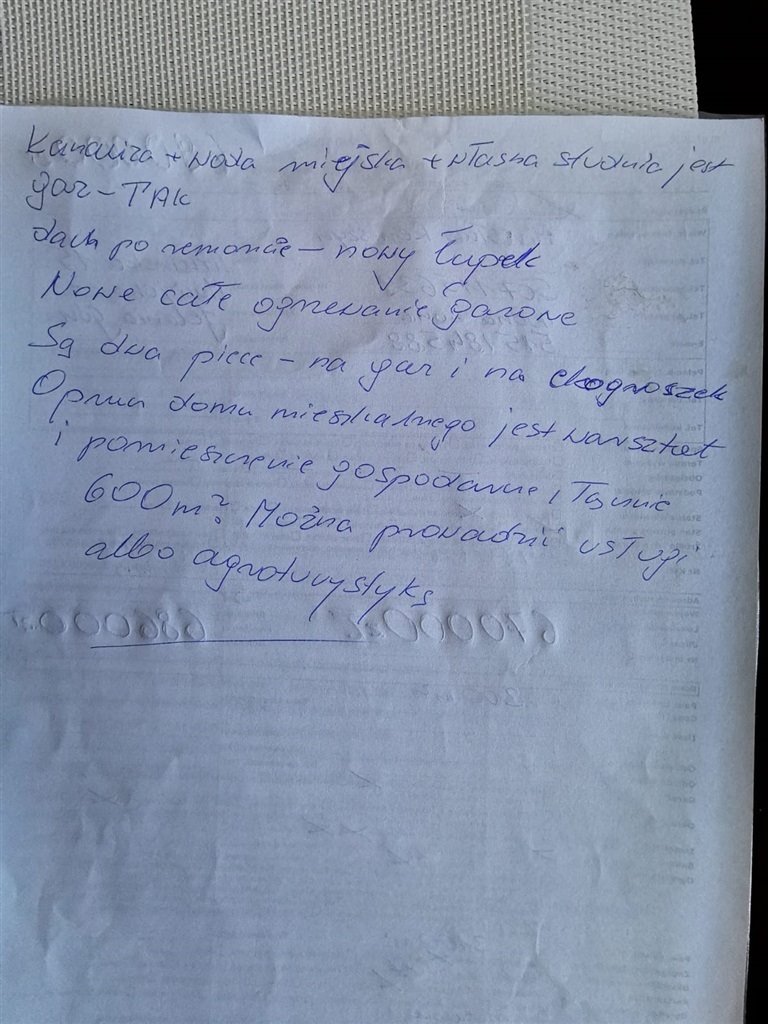 Kanaliza + woda miejska + własna studnia jest
gaz - TAK
dach po remoncie - nowy łupek
Nowe całe ogrzewanie gazowe
Są dwa piece - na gaz i na ekogroszek
Oprucz domu mieszkalnego jest warsztat
i pomieszczenie gospodarcze, łącznie
600 m². Można prowadzić usługi
albo agroturystykę